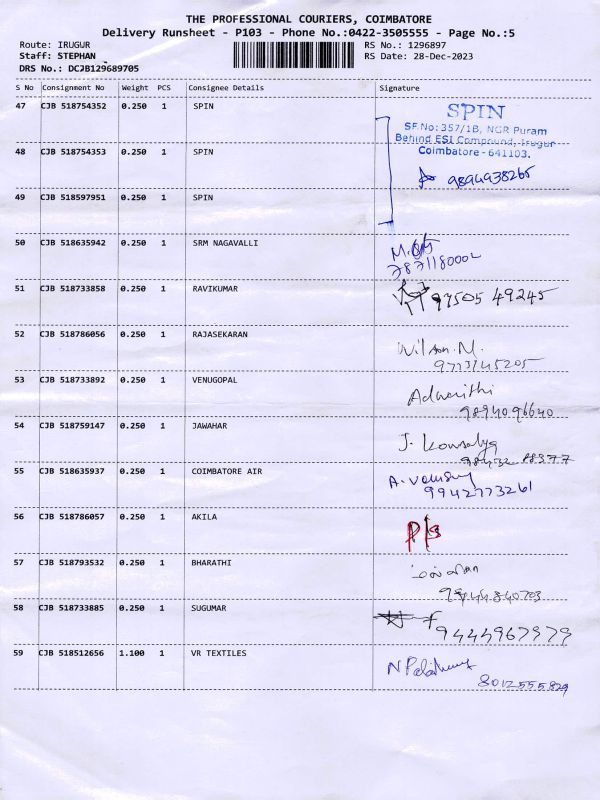 THE PROFESSIONAL COURIERS, COIMBATORE
Delivery Runsheet - P103 - Phone No.:0422-3505555 - Page No.:5
Route: IRUGUR RS No.: 1296897
Staff: STEPHAN RS Date: 28-Dec-2023
DRS No.: DCJB129689705
S No Consignment No Weight PCS Consignee Details Signature
47 CJB 518754352 0.250 1 SPIN
SPIN
SF.No: 357/1B, NGR Puram
Behind ESI Compound, Irugur
Coimbatore - 641103.
48 CJB 518754353 0.250 1 SPIN
9894938265
49 CJB 518597951 0.250 1 SPIN
50 CJB 518635942 0.250 1 SRM NAGAVALLI
7871180002
51 CJB 518733858 0.250 1 RAVIKUMAR
97505 49245
52 CJB 518786056 0.250 1 RAJASEKARAN
Wilson. M.
53 CJB 518733892 0.250 1 VENUGOPAL
9894096640
54 CJB 518759147 0.250 1 JAWAHAR
J. Kowsalya
55 CJB 518635937 0.250 1 COIMBATORE AIR
9942773261
56 CJB 518786057 0.250 1 AKILA
P/s
57 CJB 518793532 0.250 1 BHARATHI
58 CJB 518733885 0.250 1 SUGUMAR
9444967979
59 CJB 518512656 1.100 1 VR TEXTILES
8012555829